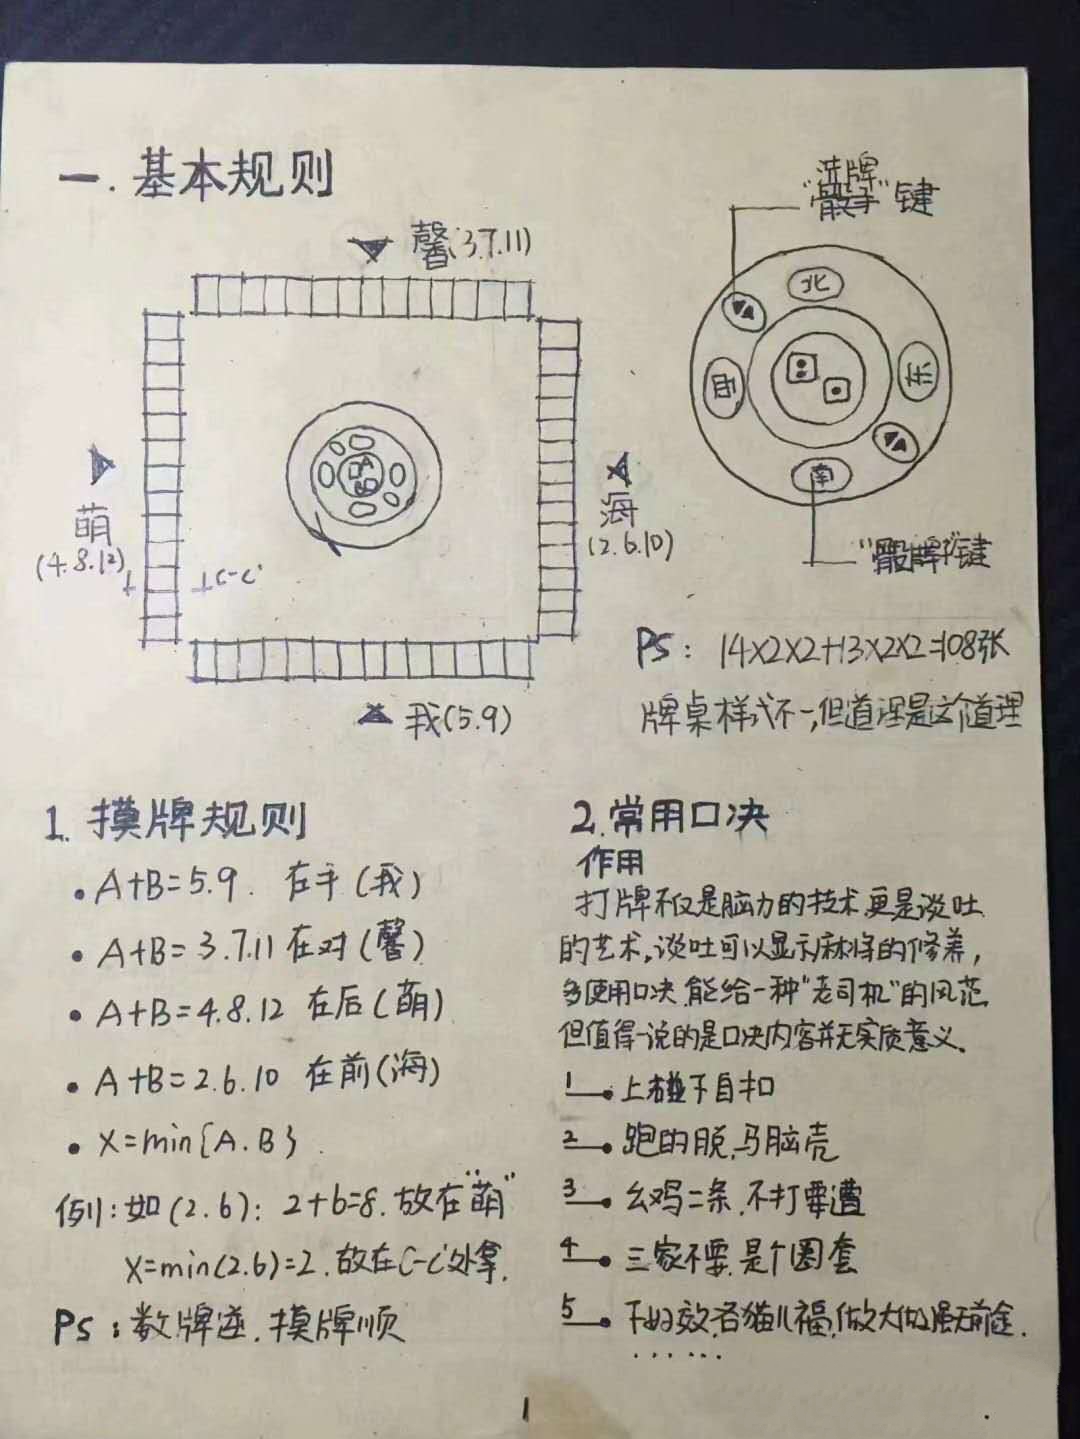 一.基本规则
馨(3.7.11)
萌
(4.8.12)
C-C'
海
(2.6.10)
我(5.9)
洗牌
"骰子"键
北
东
南
"骰牌子"键
PS: 14×2×2+13×2×2=108张
牌桌样式不一,但道理是这个道理
1. 摸牌规则
• A+B=5.9. 在手(我)
• A+B=3.7.11 在对(馨)
• A+B=4.8.12 在后(萌)
• A+B=2.6.10 在前(海)
• X=min{A.B}.
例:如(2.6): 2+6=8.放在"萌"
X=min(2.6)=2.放在C-C'处拿.
PS:数牌逆.摸牌顺
2.常用口决
作用
打牌不仅是脑力的技术,更是谈吐
的艺术,谈吐可以显示麻将的修养,
多使用口决,能给一种"老司机"的风范
但值得一说的是口决内容并无实质意义.
1 上碰下自扣
2 跑的脱,马脑壳
3 幺鸡二条,不打要遭
4 三家不要,是个圈套
5 猫儿福,做大做强无前途.
......
1